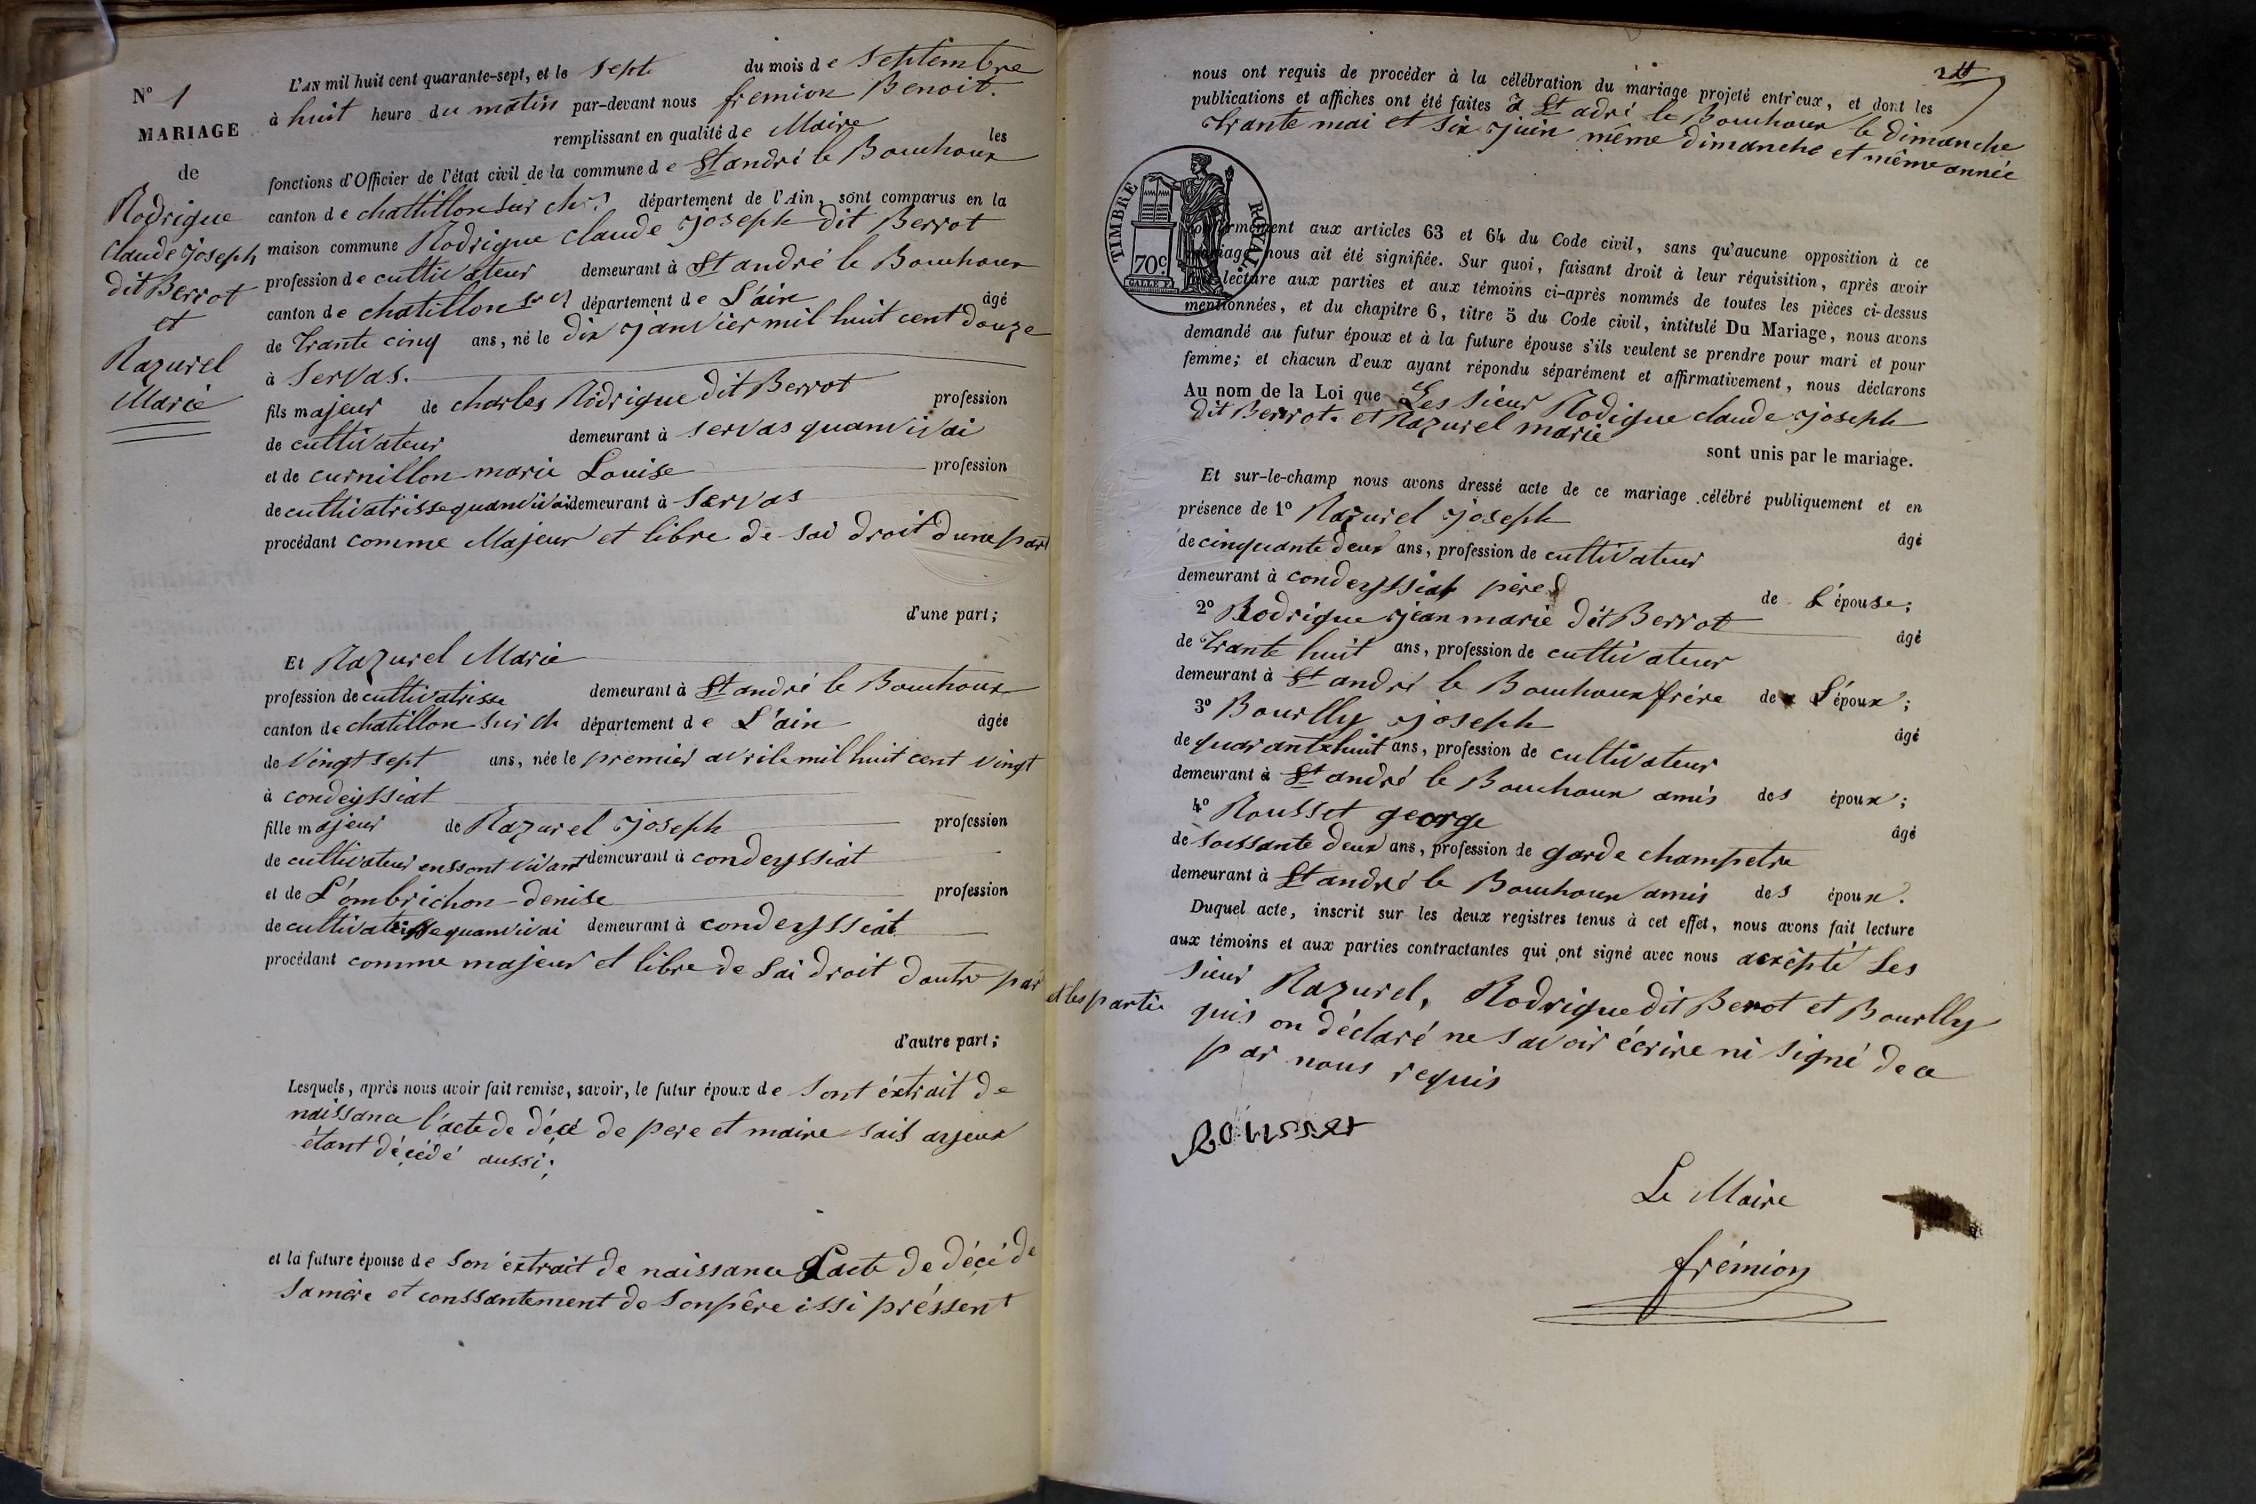 N° 1
MARIAGE
de
Rodrigue
Claude Joseph
dit Berrot
et
Razurel
Marie
L'AN mil huit cent quarante-sept, et le sept du mois de septembre
à huit heure du matin par-devant nous fremion Benoit.
remplissant en qualité de Maire les
fonctions d'Officier de l'état civil de la commune de St andré le Bouchoux
canton de chattillon sur ch. département de l'Ain, sont comparus en la
maison commune Rodrigue claude joseph dit Berrot
profession de cultivateur demeurant à St andré le Bouchoux
canton de chatillon sr ch département de L'ain âgé
de trante cinq ans, né le dix janvier mil huit cent douze
à servas.
fils majeur de charles Rodrigue dit Berrot profession
de cultivateur demeurant à servas quanvivai
et de curnillon marie Louise profession
de cultivatrisse quanvivai demeurant à servas
procédant comme Majeur et libre de sai droit dune part
d'une part;
Et Razurel Marie
profession de cultivatrisse demeurant à St andré le Bouchoux
canton de chatillon sur ch département de L'ain âgée
de vingt sept ans, née le premier avrile mil huit cent vingt
à condeyssiat
fille majeur de Razurel joseph profession
de cultivateur enssont vivant demeurant à condeyssiat
et de L'ombrichon denise profession
de cultivatrisse quanvivai demeurant à condeyssiat
procédant comme majeur et libre de sai droit dautre par et les partie
d'autre part;
Lesquels, après nous avoir fait remise, savoir, le futur époux de sont éxtrait de
naissance l'acte de décé de pere et maire sais ayeux
étant décédé aussi;
et la future épouse de son éxtrait de naissance Lacte de décé de
samère et conssantement de sonpère issi préssent
2 tt
nous ont requis de procéder à la célébration du mariage projeté entr'eux, et dont les
publications et affiches ont été faites à St adré le Bouchoux le dimanche
trante mai et six juin même dimanche et même année
TIMBRE ROYAL.
70c.
GALLE F.
conformément aux articles 63 et 64 du Code civil, sans qu'aucune opposition à ce
mariage nous ait été signifiée. Sur quoi, faisant droit à leur réquisition, après avoir
fait lecture aux parties et aux témoins ci-après nommés de toutes les pièces ci-dessus
mentionnées, et du chapitre 6, titre 5 du Code civil, intitulé Du Mariage, nous avons
demandé au futur époux et à la future épouse s'ils veulent se prendre pour mari et pour
femme; et chacun d'eux ayant répondu séparément et affirmativement, nous déclarons
Au nom de la Loi que Les sieur Rodigue claude joseph
dit Berrot. et Razurel marie
sont unis par le mariage.
Et sur-le-champ nous avons dressé acte de ce mariage célébré publiquement et en
présence de 1° Razurel joseph âgé
de cinquante deux ans, profession de cultivateur
demeurant à condeyssiat père de L'épouse;
2° Rodrigue jean marie dit Berrot âgé
de trante huit ans, profession de cultivateur
demeurant à St andré le Bouchoux frére de L'époux;
3° Bourlly joseph âgé
de quarantehuit ans, profession de cultivateur
demeurant à St andré le Bouchoux amis des époux;
4° Rousset george âgé
de soissante deux ans, profession de garde champetre
demeurant à St andré le Bouchoux amis des époux.
Duquel acte, inscrit sur les deux registres tenus à cet effet, nous avons fait lecture
aux témoins et aux parties contractantes qui ont signé avec nous accépté Les
sieur Razurel, Rodrigue dit Berrot et Bourlly
quis on déclaré ne savoir écrire ni signé de ce
par nous requis
Rousset
Le Maire
frémion